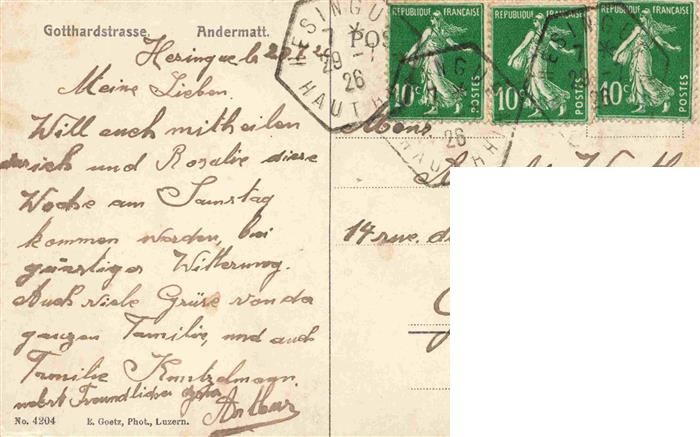 Gotthardstrasse. Andermatt.
Hesingue le
Meine Lieben
Will euch mitheilen
dass ich und Rosalie diese
Woche am Samstag
kommen werden, bei
günstiger Witterung.
Auch viele Grüse von der
ganzen Familie, und auch
Familie Kuntzelmann
nebst Freundlicher Grüse
Arthur
No. 4204 E. Goetz, Phot., Luzern.
REPUBLIQUE FRANÇAISE REPUBLIQUE FRANÇAISE REPUBLIQUE FRANÇAISE
10c POSTES 10c POSTES 10c POSTES
HESINGUE
7 *
29 -
26
HAUT RHIN
POS
Mons
14 rue. d